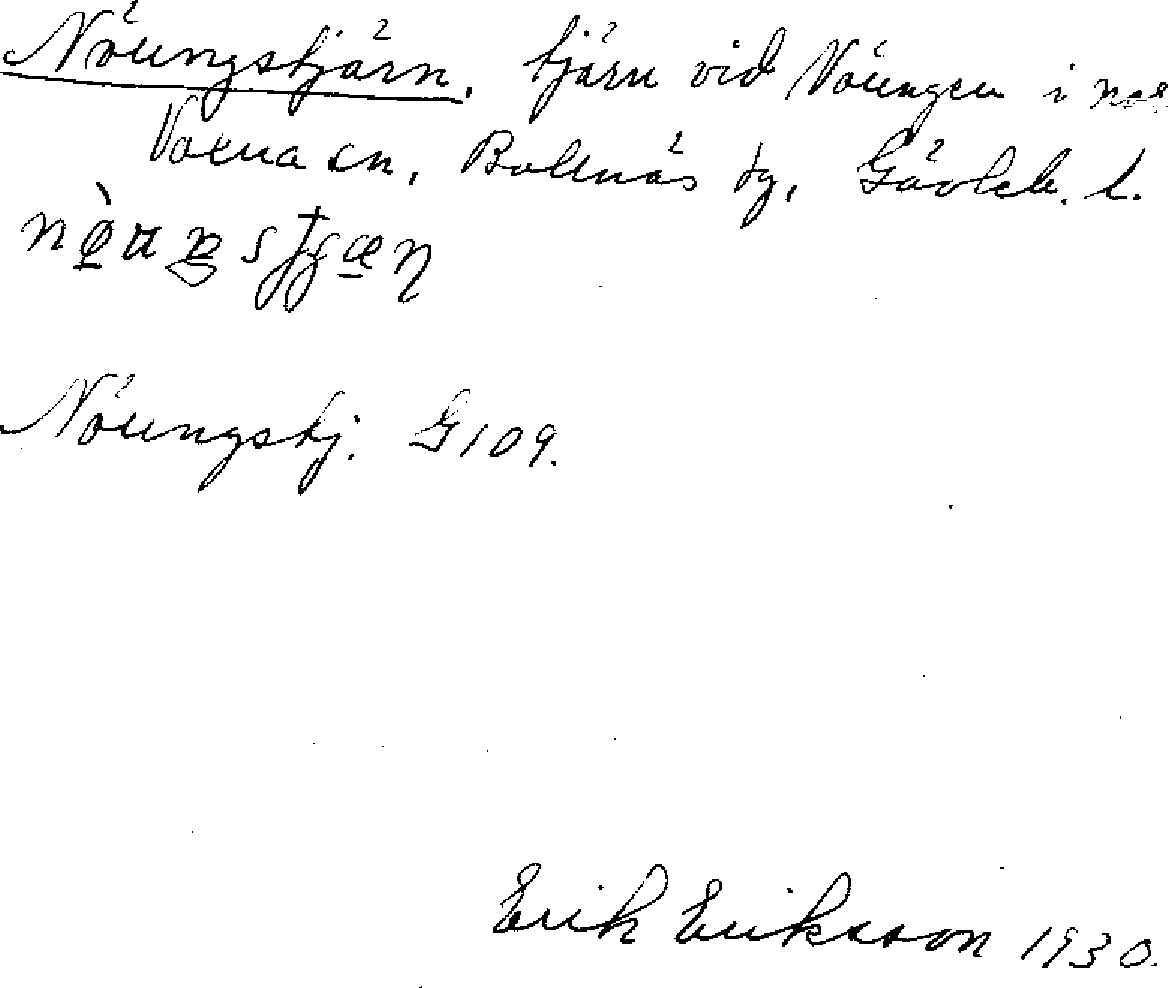 Nöungstjärn, tjärn vid Nöungen i
Voxna sn, Bollnäs tg, Gävleb. l.
Nöungstj. G109.
Erik Eriksson 1930.